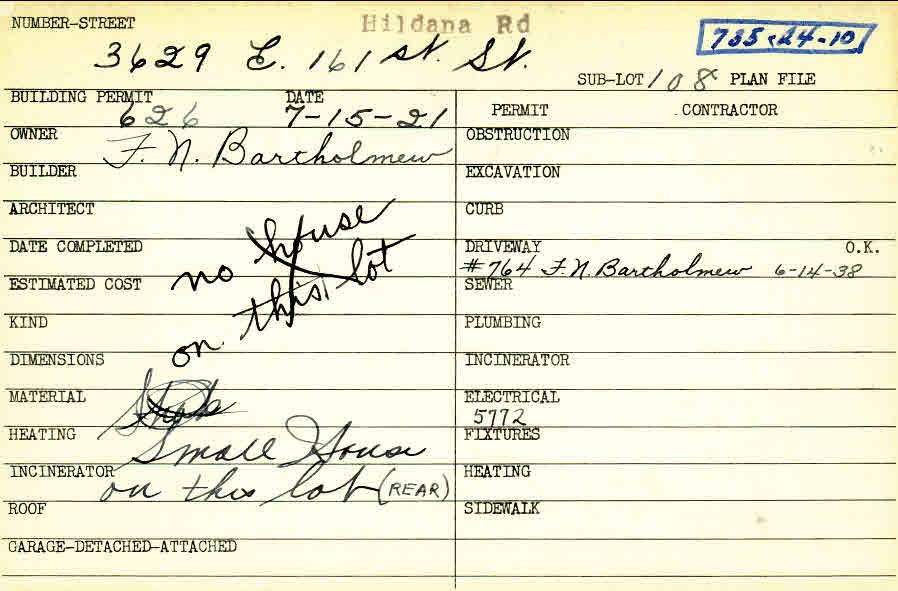 NUMBER-STREET Hildana Rd 735-24-10
3629 E. 161 st. St.
SUB-LOT 108 PLAN FILE
BUILDING PERMIT DATE
626 7-15-21
PERMIT CONTRACTOR
OWNER F. N. Bartholmew
OBSTRUCTION
BUILDER
EXCAVATION
ARCHITECT
CURB
DATE COMPLETED
no house
on this lot
DRIVEWAY O.K.
#764 F. N. Bartholmew 6-14-38
ESTIMATED COST
SEWER
KIND
PLUMBING
DIMENSIONS
INCINERATOR
MATERIAL
ELECTRICAL
5772
HEATING Small House
FIXTURES
INCINERATOR on this lot (REAR)
HEATING
ROOF
SIDEWALK
GARAGE-DETACHED-ATTACHED